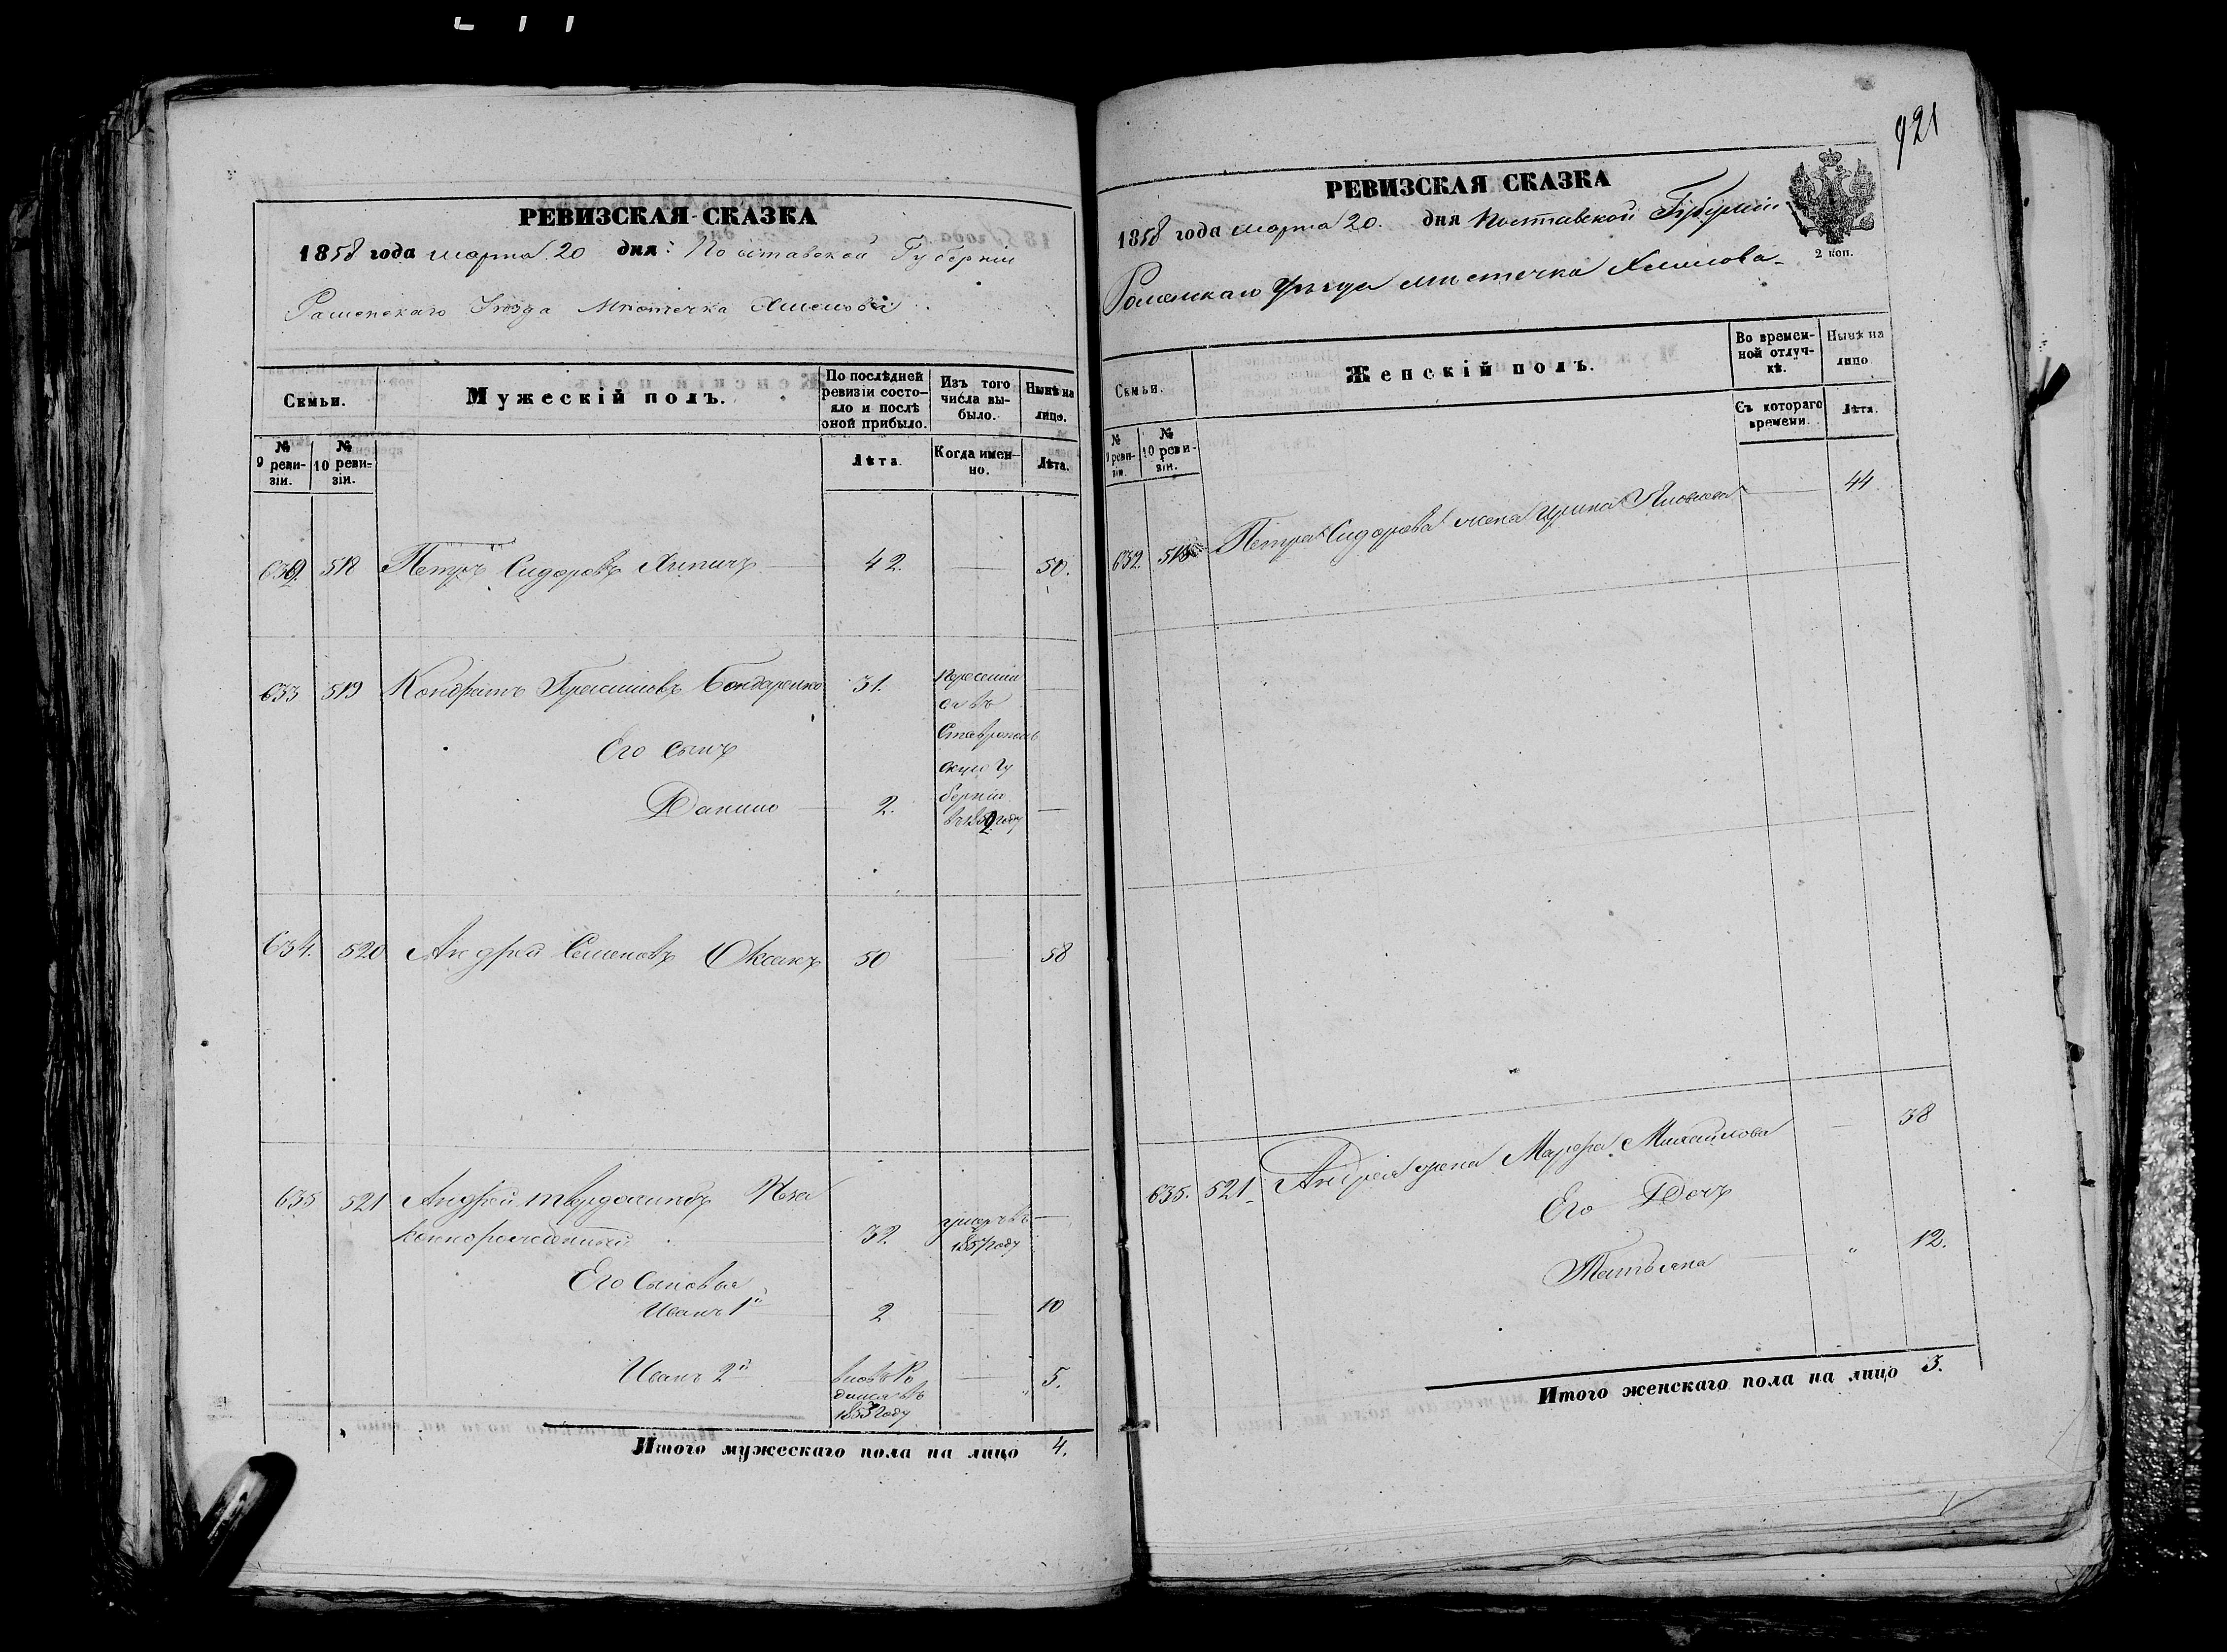 921
РЕВИЗСКАЯ СКАЗКА
1858 года марта 20 дня: Полтавской Губерніи
Роменскаго Уѣзда Мѣстечка Хмелова
Семьи.
Мужескій полъ.
По послѣдней ревизіи состояло и послѣ оной прибыло.
Изъ того числа выбыло.
Нынѣ на лицо.
№ 9 ревизіи.
№ 10 ревизіи.
Лѣта.
Когда именно.
Лѣта.
632. 518 Петръ Сидоровъ 42. 50.
633 519 Кондратъ Герасимовъ Бондаренко 31. Переселил
ся въ
Ставрополь
скую Гу
Его сынъ
бернію
Данило 2.
въ 1852 году
634. 520 Андрей Семеновъ 50 58
635 521 Андрей 32. умеръ въ
1857 году
Его сыновья
Иванъ 1й 2 10
Иванъ 2й вновь Ро 5.
дился въ
1853 году
Итого мужескаго пола на лицо 4.
РЕВИЗСКАЯ СКАЗКА
1858 года марта 20. дня Полтавской Губерніи
2 коп.
Роменскаго Уѣзда мѣстечка Хмелова
Семьи.
Женскій полъ.
Во временной отлучкѣ.
Нынѣ на лицо.
№ 9 ревизіи.
№ 10 ревизіи.
Съ котораго времени.
Лѣта.
632. 518 Петра Сидорова жена Ирина 44
635. 521 Андрея жена Марфа Михайлова 38
Его Дочь
Татьяна " 12.
Итого женскаго пола на лицо 3.